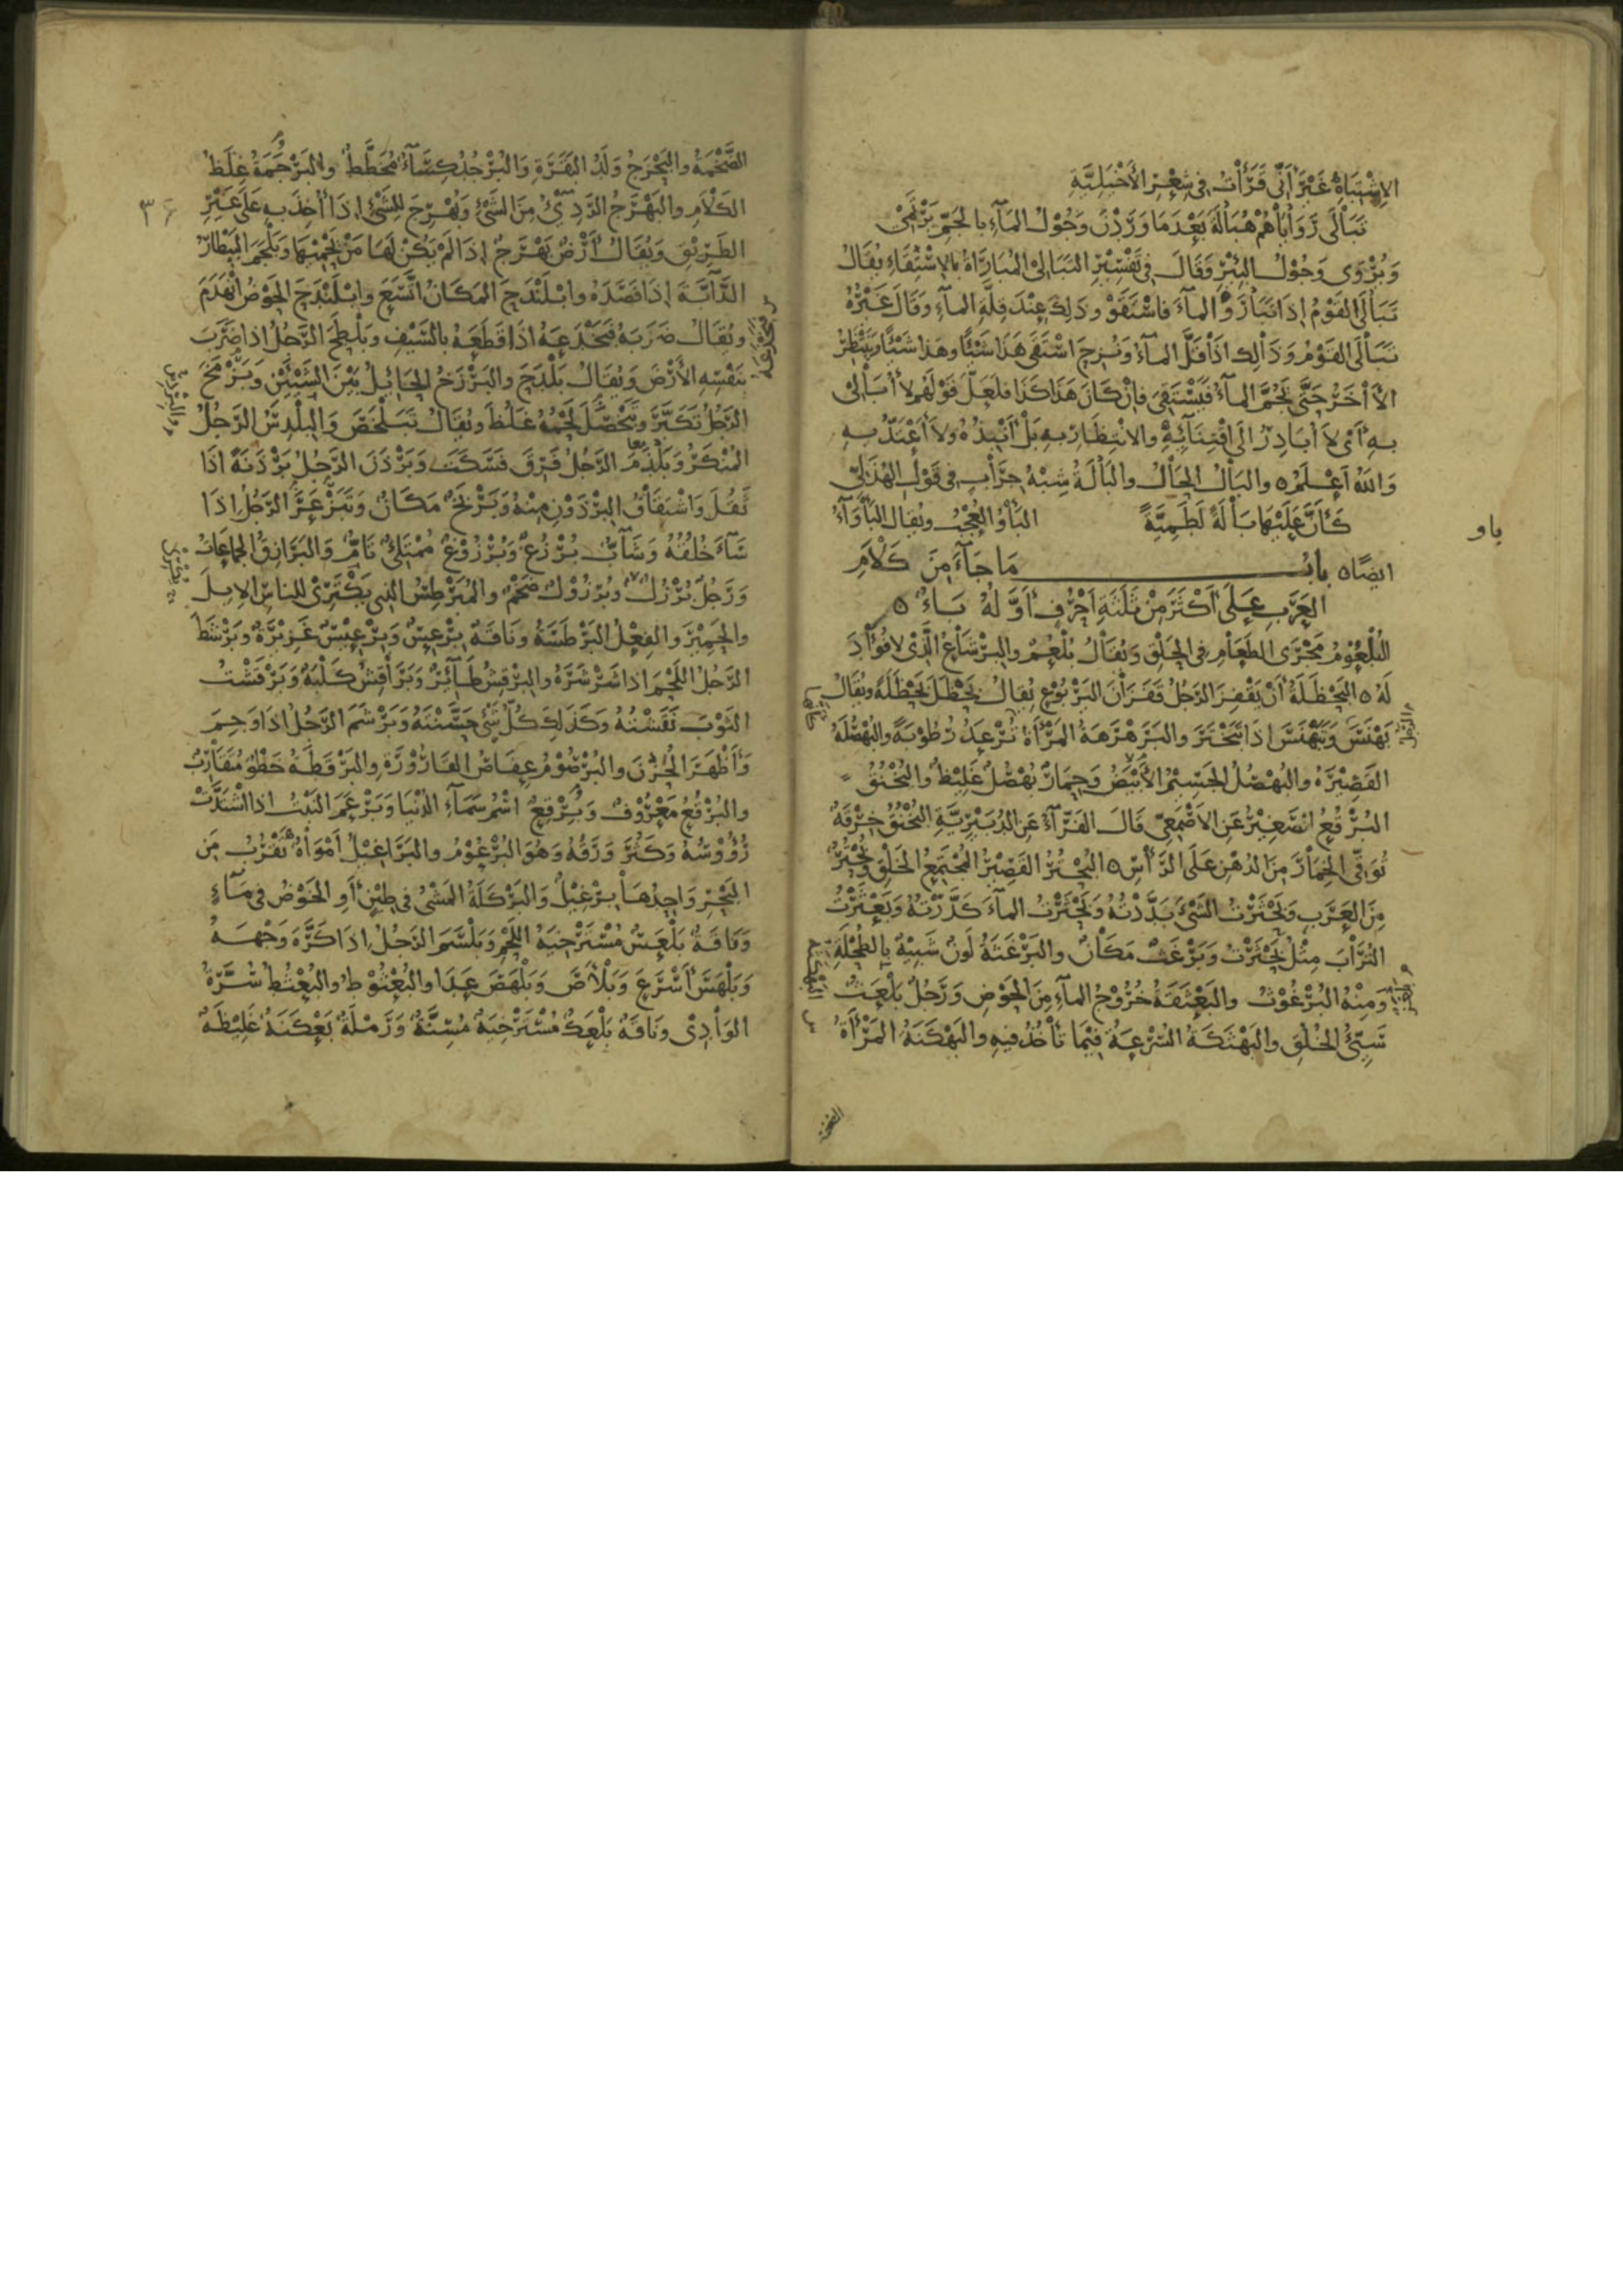 الاشْتِبَاهُ غَيْرَ أَنِّي قَرَأْتُ فِي شِعْرِ الأَخْيَلِيَّةِ
تَبَالَى رَوَايَاهُمْ هُبَالَةَ بَعْدَمَا وَرَدْنَ وَجُوْلُ المَآءِ بِالْجَمِّ يَرْتَمِيْ
وَيُرْوَى وَجُوْلُ البِئْرِ وَقَالَ فِي تَفْسِيْرِ التَّبَالِيْ المُبَارَاةُ بِالاسْتِقَاءِ يُقَالُ
تَبَالَى القَوْمُ إِذَا تَبَادَرُوا المَآءَ فَاسْتَقَوْا وَذَلِكَ عِنْدَ قِلَّةِ المآءِ وَقَالَ غَيْرُهُ
تَبَالَى القَوْمُ وَذَلِكَ إِذَا قَلَّ المآءُ وَنُزِحَ اسْتَقَى هَذَا شَيْئًا وَهَذَا شَيْئًا وَيَنْتَظِرُ
الآخَرُ حَتَّى يَجُمَّ المآءُ فَيَسْتَقِيَ فَإِنْ كَانَ هَذَا كَذَا فَلَعَلَّ قَوْلَهُمْ لَا أُبَالِيْ
بِهِ أَيْ لَا أُبَادِرُ إِلَى اقْتِنَائِهِ وَالانْتِظَارِ بِهِ بَلْ أَنْبِذُهُ وَلَا أَعْتَدُّ بِهِ
وَاللَّهُ أَعْلَمُ ٥ والبَالُ الحَالُ والبَالَةُ شِبْهُ جِرَابٍ فِي قَوْلِ الهُذَلِيِّ
كَأَنَّ عَلَيْهَا بَالَةً لَطَمِيَّةً البَأْوُ العُجْبُ ويُقَالُ البَأْوَآءُ
باو
ايضًا ٥ بابُ مَا جَآءَ مِنَ كَلَامِ
العَرَبِ عَلَى أَكْثَرَ مِنْ ثَلَثَةِ أَحْرُفٍ أَوَّلُهُ بَاءٌ ٥
البُلْعُوْمُ مَجْرَى الطَعَامِ فِي الحَلْقِ وَيُقَالُ بُلْعُمٌ والبِرْشَاعُ الَّذِي لَا فُؤَادَ
لَهُ ٥ البَحْظَلَةُ أَنْ يَقْفِزَ الرَّجُلُ قَفَزَانَ اليَرْبُوْعِ يُقَالُ بَحْظَلَ بَحْظَلَةً ويُقَالُ
بَهْنَسَ وَتَبَهْنَسَ إِذَا تَبَخْتَرَ والبَرَهْرَهَةُ المَرْأَةُ تُرْعَدُ رُطُوْبَةً والبُهْصُلَةُ
القَصِيْرَةُ والبُهْصُلُ الجَسِيْمُ الأَبْيَضُ وَحِمَارٌ بُهْصُلٌ غَلِيْظٌ والبُخْنُقُ
البُرْقُعُ الصَّغِيْرُ عَنِ الأَصْمَعِيِّ قَالَ الفَرَّآءُ عَنِ الدُبَيْرِيَّةِ البُخْنُقُ خِرْقَةٌ
تُوَقِّي الخِمَارَ مِنَ الدُهْنِ عَلَى الرَّأْسِ ٥ البُحْتُرُ القَصِيْرُ المُجْتَمِعُ الخَلْقِ وَبُحْتُرٌ
مِنَ العَرَبِ وَبَحْثَرْتُ الشَّيْءَ بَدَّدْتُهُ وَبَحْثَرْتُ المآءَ كَدَّرْتُهُ وَبَعْثَرْتُ
التُرَابَ مِثْلُ بَحْثَرْتُ وَبَرْغَثٌ مَكَانٌ والبَرْغَثَةُ لَوْنٌ شَبِيْهٌ بِالطُّحْلَةِ
وَمِنْهُ البُرْغُوْثُ والبَعْثَقَةُ خُرُوْجُ المآءِ مِنَ الحَوْضِ وَرَجُلٌ بَلْعَثٌ
سَيِّئُ الخُلُقِ والبَهْنَكَةُ السُّرْعَةُ فِيْمَا تَأْخُذُ فِيهِ والبَهْكَنَةُ المَرْأَةُ
الضخمة
٣٤
الضَّخْمَةُ والبَحْزَجُ وَلَدُ البَقَرَةِ وَالبُرْجُدُ كِسَآءٌ مُخَطَّطٌ والبَرْجَمَةُ غِلَظُ
الكَلَامِ والبَهْرَجُ الرَّدِيْءُ مِنَ الشَّيْءِ وَبُهْرِجَ الشَّيْءُ إِذَا أُخِذَ بِهِ عَلَى غَيْرِ
الطَّرِيْقِ وَيُقَالُ أَرْضٌ بَهْرَجٌ إِذَا لَمْ يَكُنْ لَهَا مَنْ يَحْمِيْهَا وَبَلْجَمَ البَيْطَارُ
الدَّآبَّةَ إِذَا فَصَدَهُ وابْلَنْدَحَ المَكَانُ اتَّسَعَ وابْلَنْدَحَ الحَوْضُ انْهَدَمَ
ويُقَالُ ضَرَبَهُ فَبَخْدَعَهُ إِذَا قَطَعَهُ بِالسَّيْفِ وَبَلْطَحَ الرَّجُلُ إِذَا ضَرَبَ
بِنَفْسِهِ الأَرْضَ وَيُقَالُ بَلْدَحَ والبَرْزَخُ الحَائِلُ بَيْنَ الشَّيْئَيْنِ وَبَزْمَخَ
الرَّجُلُ تَكَبَّرَ وَتَبَخْصَلَ لَحْمُهُ غَلُظَ ويُقَالُ تَبَلْخَصَ وَالبِلْدِمُ الرَّجُلُ
المُنْكَرُ وَبَلْدَمَ الرَّجُلُ فَرِقَ فَسَكَتَ وَبَرْذَنَ الرَّجُلُ بَرْذَنَةً إِذَا
ثَقُلَ وَاشْتِقَاقُ البِرْذَوْنِ مِنْهُ وَبَرْبَخٌ مَكَانٌ وَتَبَزْعَرَ الرَّجُلُ إِذَا
سَآءَ خُلُقُهُ وَشَآبٌّ بُرْزُغٌ وَبُرْزُوْغٌ مُمْتَلِئٌ تَامٌّ وَالبَرَازِقُ الجَمَاعَاتُ
وَرَجُلٌ بُرْزُلٌ ضَخْمٌ والمُبَرْطِسُ الَّذِي يَكْتَرِي للنَّاسِ الإِبِلَ
والحَمِيْرَ والفِعْلُ البَرْطَسَةُ ونَاقَةٌ بِرْعِسٌ وَبِرْعِيْسٌ غَزِيْرَةٌ وَبَرْشَطَ
الرَّجُلُ اللَّحْمَ إِذَا شَرْشَرَهُ والبِرْقِشُ طَآئِرٌ وَبَرَاقِشُ كَلْبَةٌ وَبَرْقَشْتُ
الثَوْبَ نَقَشْتُهُ وَكَذَلِكَ كُلُّ شَيْءٍ حَسَّنْتَهُ وَبَرْشَمَ الرَّجُلُ إِذَا وَجَمَ
وَأَظْهَرَ الحُزْنَ والبُرْصُوْمُ عِفَاصُ القَارُوْرَةِ والبَرْقَطَةُ خَطْوٌ مُتَقَارِبٌ
والبُرْقُعُ مَعْرُوْفٌ وَبِرْقِعُ اسْمُ سَمَآءِ الدُنْيَا وَبَرْعَمَ النَبْتُ إِذَا اسْتَدَارَتْ
رُؤُوْسُهُ وَكَثُرَ وَرَقُهُ وَهُوَ البُرْعُوْمُ والبَرَاغِيْلُ أَمْوَاهٌ تَقْرُبُ مِنَ
البَحْرِ وَاحِدُهَا بِرْغِيْلٌ وَالبَرْكَلَةُ المَشْيُ فِي طِيْنٍ أَوِ الخَوْضُ فِي مَآءٍ
وَنَاقَةٌ بَلْعَسٌ مُسْتَرْخِيَةُ اللَّحْمِ وَبَلْسَمَ الرَّجُلُ إِذَا كَرَّهَ وَجْهَهُ
وَبَلْهَسَ أَسْرَعَ وَبَلْأَصَ وَبَلْهَصَ عَدَا والبُعْثُوْطُ والبُعْثُطُ سُرَّةُ
الوَادِيْ ونَاقَةٌ بَلْعَكٌ مُسْتَرْخِيَةٌ مُسِنَّةٌ وَرَمْلَةٌ بَعْكَنَةٌ غَلِيْظَةٌ